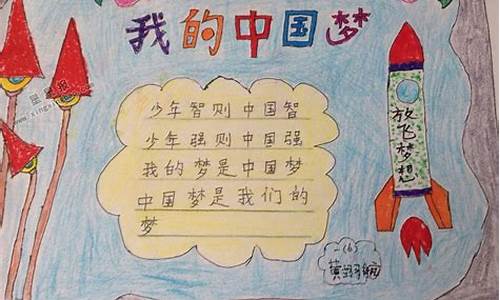 我的中国梦
少年智则中国智
少年强则中国强
我的梦是中国梦
中国梦是我们的
梦
放飞梦想
(6)